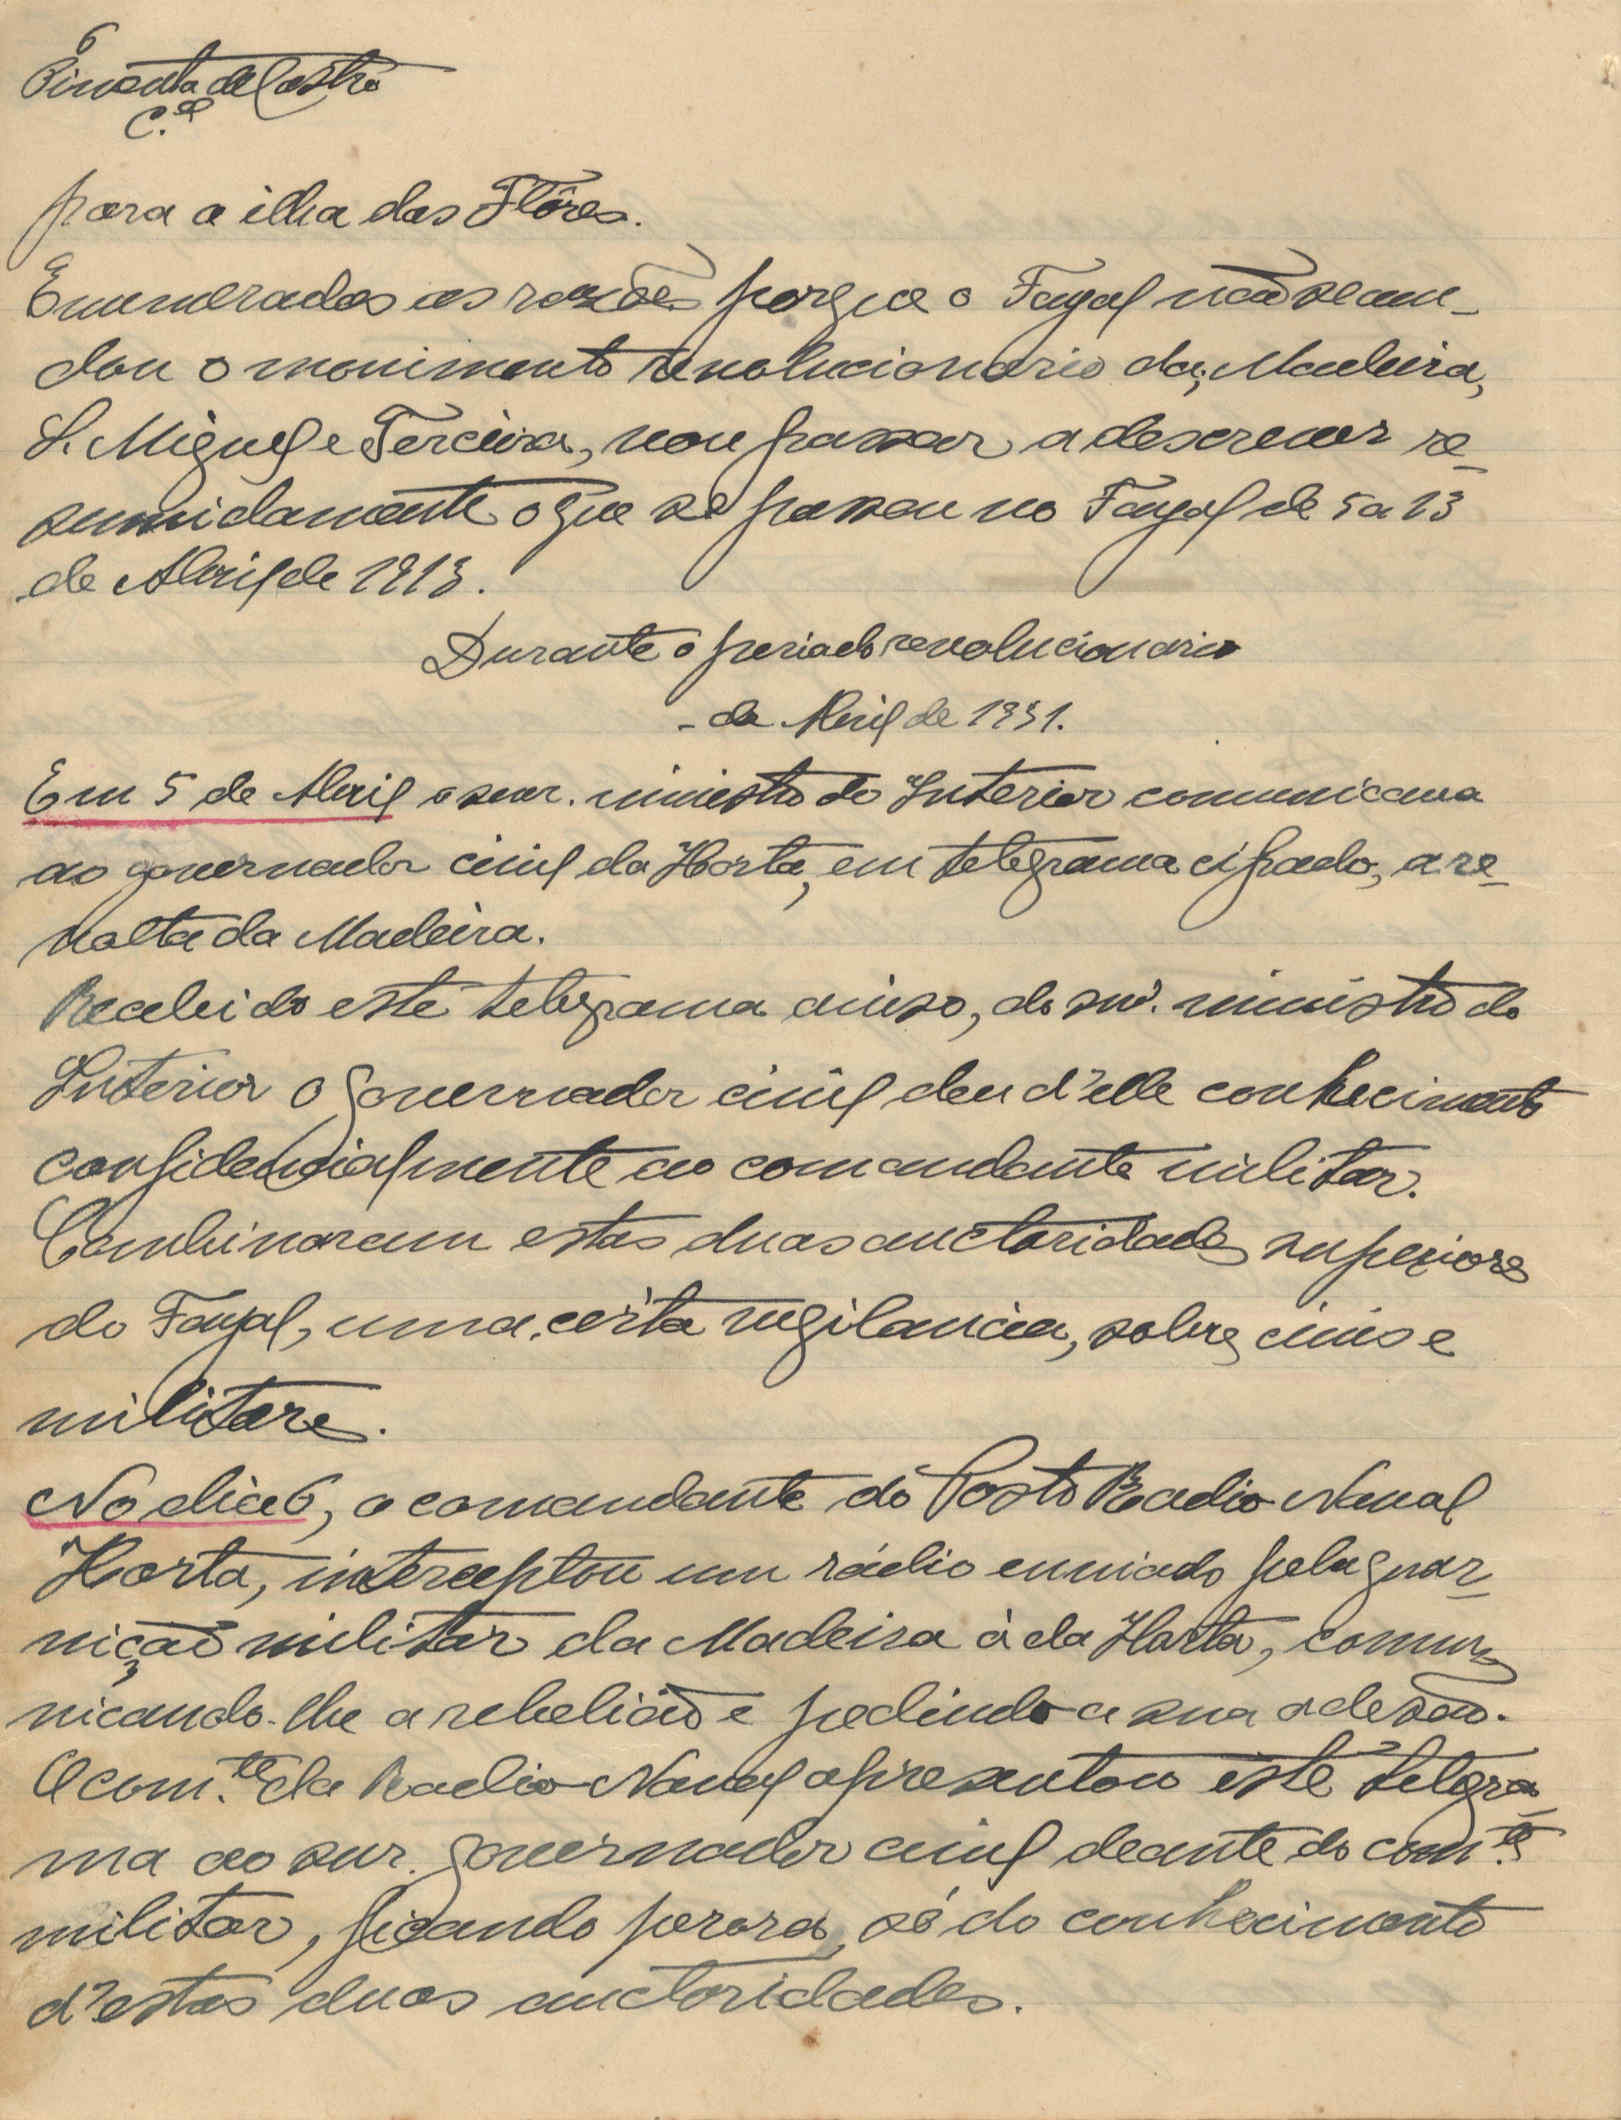 6
Pimenta de Castro
C.el
para a ilha das Flôres.
Enumeradas as razões porque o Fayal não secun-
dou o movimento revolucionario da Madeira,
S. Miguel e Terceira, vou passar a descrever re-
sumidamente o que se passou no Fayal de 5 a 13
de Abril de 1913.
Durante o periodo revolucionario
- de Abril de 1931.
Em 5 de Abril o snr. ministro do Interior comunicava
ao governador civil da Horta, em telegrama cifrado, a re-
volta da Madeira.
Recebido este telegrama aviso, do snr. ministro do
Interior o governador civil deu d'elle conhecimento
confidencialmente ao comandante militar.
Combinaram estas duas auctoridades superiores
do Fayal, uma certa vigilancia, sobre civis e
militares.
No dia 6, o comandante do Posto Radio-Naval
Horta, interceptou um rádio enviado pela guar-
nição militar da Madeira à da Horta, comu-
nicando-lhe a rebelião e pedindo a sua adesão.
O com.te da Radio-Naval apresentou este telegra-
ma ao snr. governador civil deante do com.te
militar, ficando por ora, só do conhecimento
d'estas duas auctoridades.